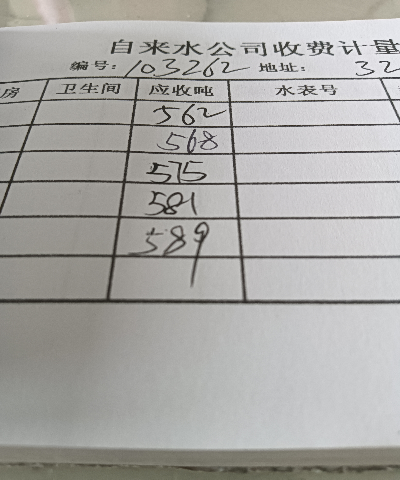 自来水公司收费计量
编号:103262 地址: 32
房 卫生间 应收吨 水表号
562
568
575
581
589